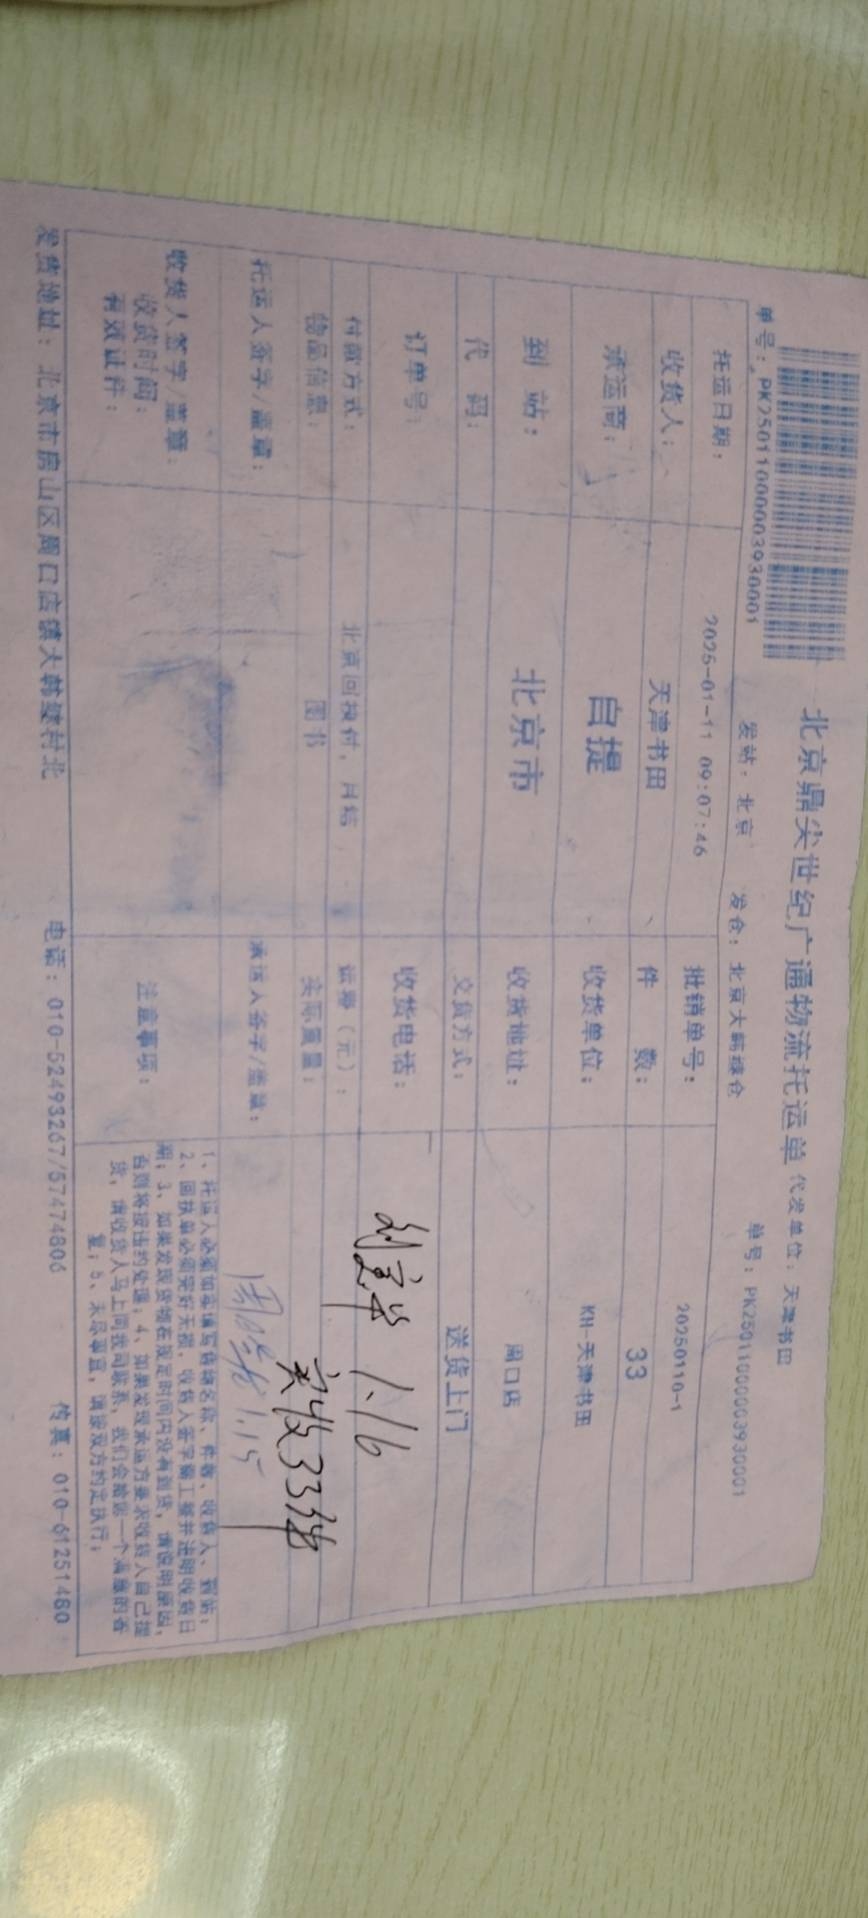 北京鼎尖世纪广通物流托运单 代发单位：天津书田
单号：PK25011000003930001 发站：北京 发仓：北京大韩继仓 单号：PK25011000003930001
托运日期： 2025-01-11 09:07:46 批销单号： 20250110-1
收货人： 天津书田 件 数： 33
承运商： 自提 收货单位： KH-天津书田
到 站： 北京市 收货地址： 周口店
代 码： 交货方式： 送货上门
订单号： 收货电话：
付款方式： 北京回执付，月结 运费（元）： 1.16
物品信息： 图书 实际重量： 实收33件
托运人签字/盖章： 承运人签字/盖章： 1.15
收货人签字/盖章：
收货时间：
有效证件：
注意事项：
1、托运人必须如实填写货物名称、件数、收货人、到站；
2、回执单必须完好无损，收货人签字盖工章并注明收货日
期；3、如果发现货物在规定时间内没有到货，请说明原因，
否则将按违约处理；4、如果发现承运方要求收货人自己提
货，请收货人马上同我司联系，我们会给您一个满意的答
复；5、未尽事宜，请按双方约定执行；
发货地址：北京市房山区周口店镇大韩继村北 电话：010-52493267/57474806 传真：010-61251480